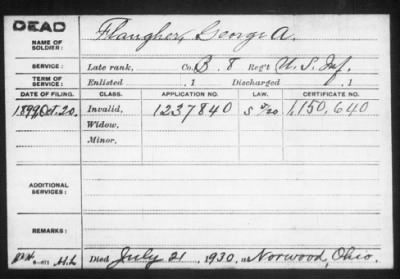 DEAD
NAME OF SOLDIER: Flaugher, George A.
SERVICE: Late rank, Co. B. 8 Reg't U.S. Inf.
TERM OF SERVICE: Enlisted , 1 Discharged , 1
DATE OF FILING. CLASS. APPLICATION NO. LAW. CERTIFICATE NO.
1899 Oct. 20. Invalid, 1237840 1,150,640
Widow,
Minor,
ADDITIONAL SERVICES:
REMARKS:
Died July 21 1930, at Norwood, Ohio.